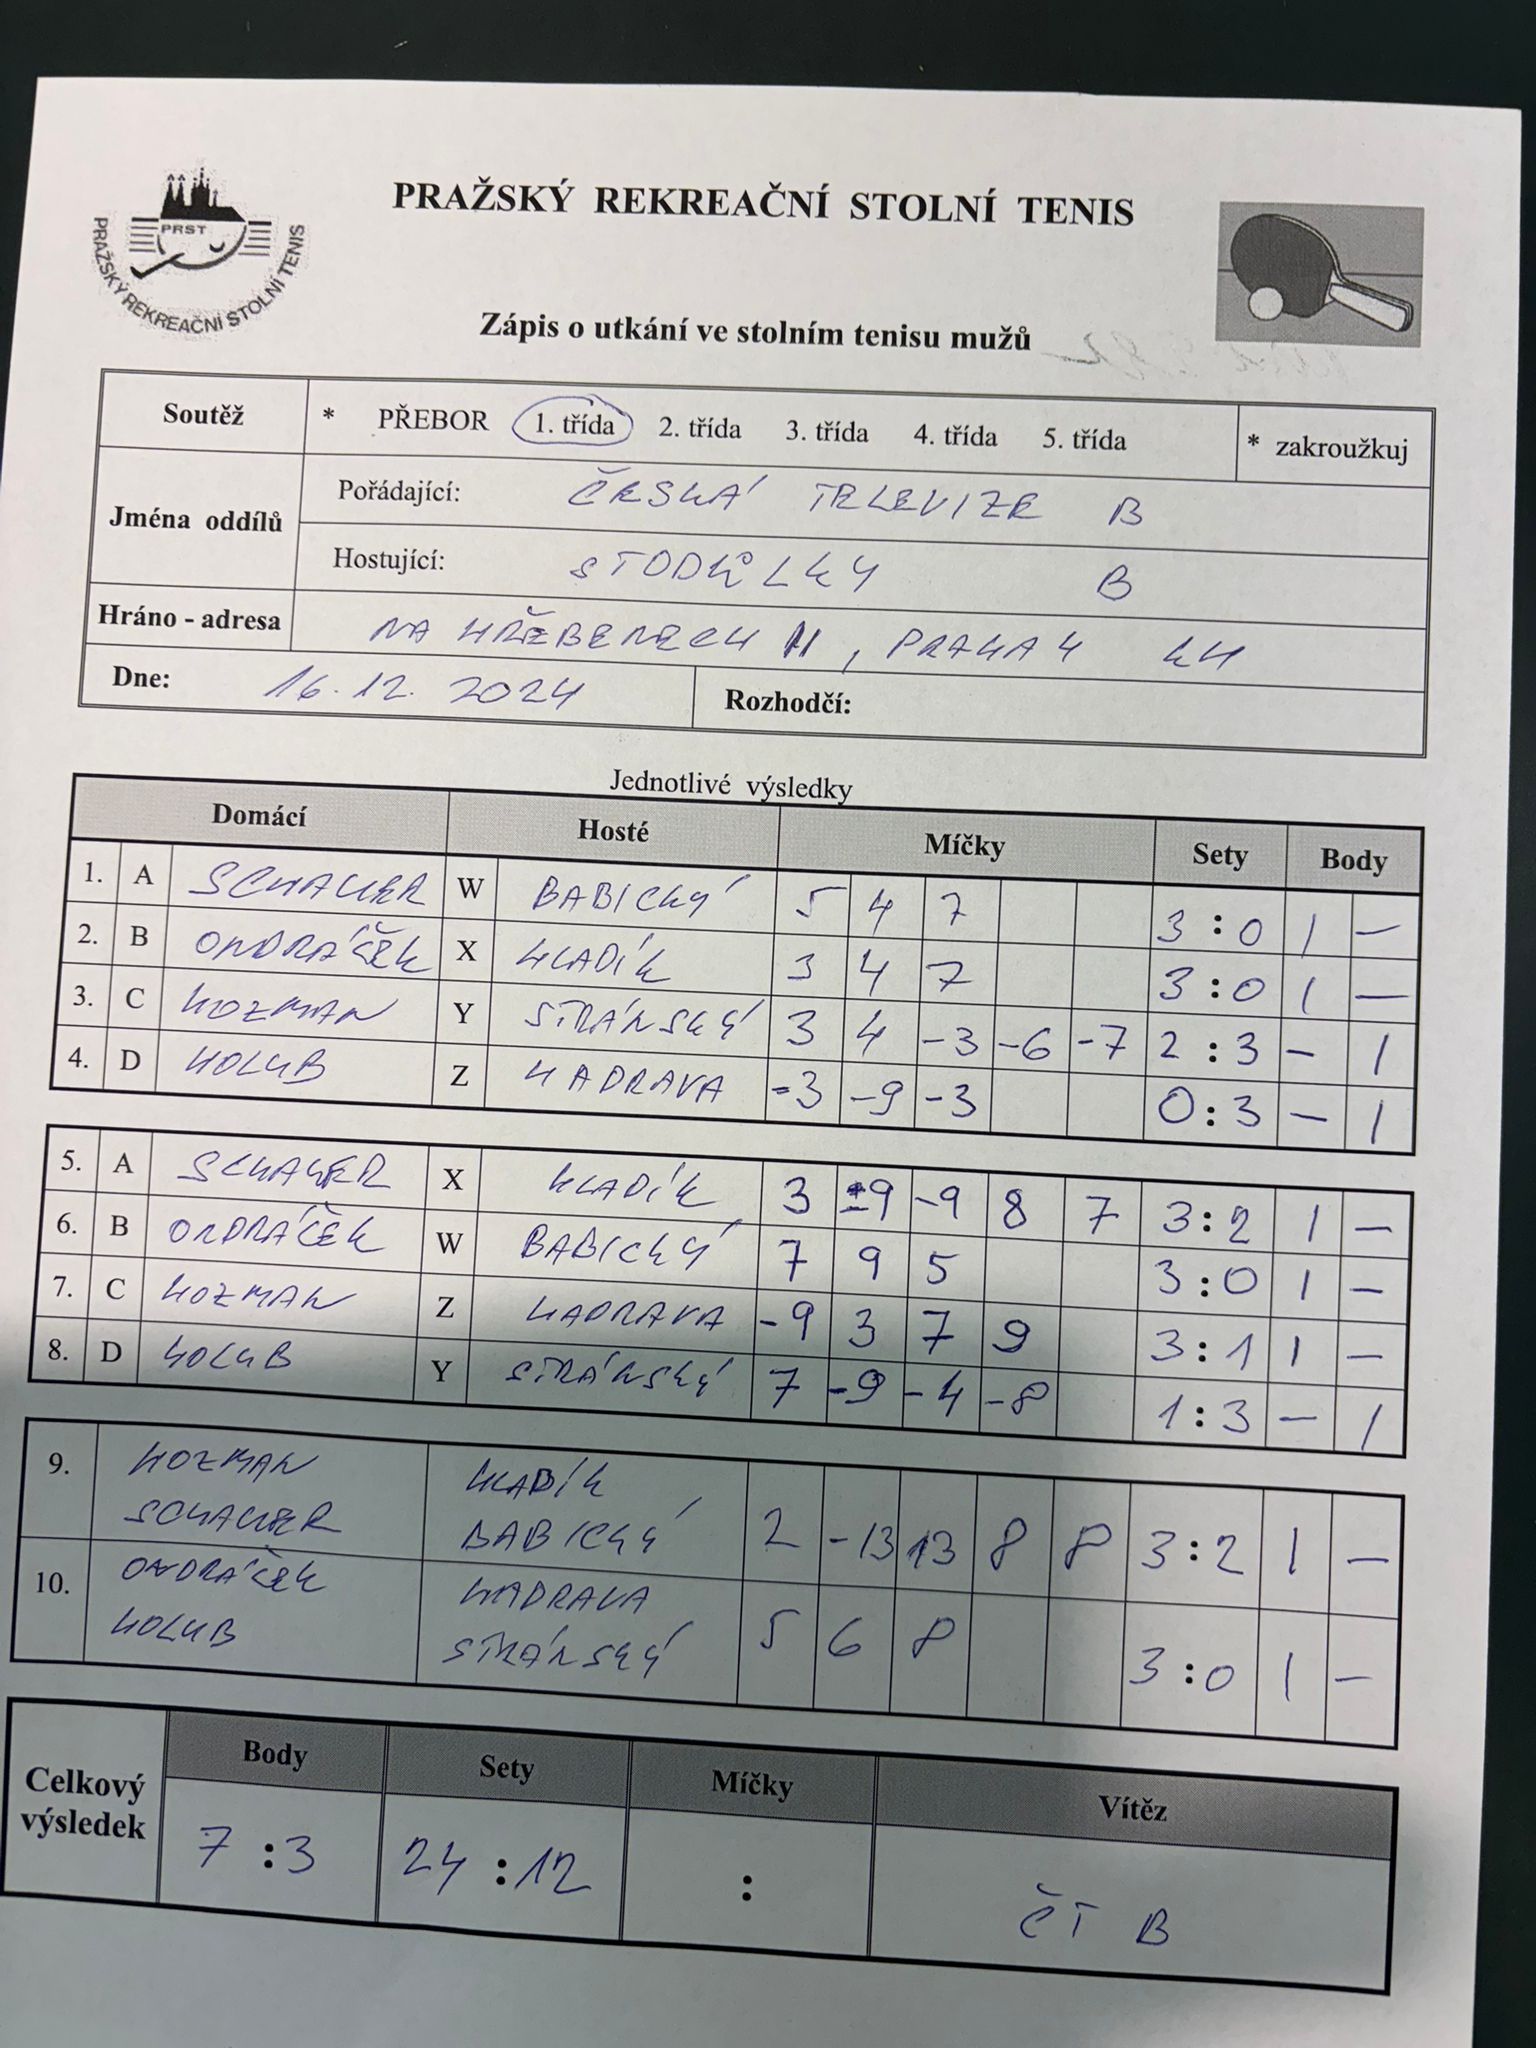 PRAŽSKÝ REKREAČNÍ STOLNÍ TENIS
PRST
PRAŽSKÝ REKREAČNÍ STOLNÍ TENIS
Zápis o utkání ve stolním tenisu mužů
Soutěž * PŘEBOR 1. třída 2. třída 3. třída 4. třída 5. třída * zakroužkuj
Jména oddílů
Pořádající: ČESKÁ TELEVIZE B
Hostující: STODŮLKY B
Hráno - adresa NA HŘEBENECH II, PRAHA 4 KH
Dne: 16.12. 2024 Rozhodčí:
Jednotlivé výsledky
Domácí Hosté Míčky Sety Body
1. A SCHAUER W BABICKÝ 5 4 7 3 : 0 1 –
2. B ONDRÁČEK X HLADÍK 3 4 7 3 : 0 1 –
3. C HOZMAN Y STRÁNSKÝ 3 4 -3 -6 -7 2 : 3 – 1
4. D HOLUB Z HADRAVA -3 -9 -3 0 : 3 – 1
5. A SCHAUER X HLADÍK 3 ±9 -9 8 7 3 : 2 1 –
6. B ONDRÁČEK W BABICKÝ 7 9 5 3 : 0 1 –
7. C HOZMAN Z HADRAVA -9 3 7 9 3 : 1 1 –
8. D HOLUB Y STRÁNSKÝ 7 -9 -4 -8 1 : 3 – 1
9. HOZMAN HLADÍK
SCHAUER BABICKÝ 2 -13 13 8 8 3 : 2 1 –
10. ONDRÁČEK HADRAVA
HOLUB STRÁNSKÝ 5 6 8 3 : 0 1 –
Celkový výsledek
Body Sety Míčky Vítěz
7 : 3 24 : 12 : ČT B